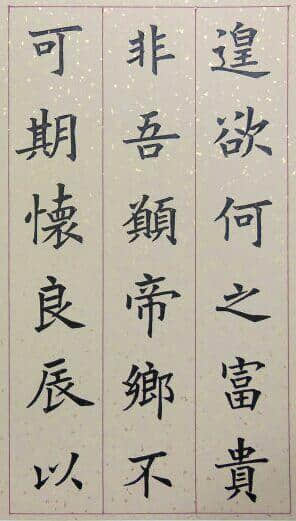 遑欲何之富貴
非吾願帝鄉不
可期懷良辰以